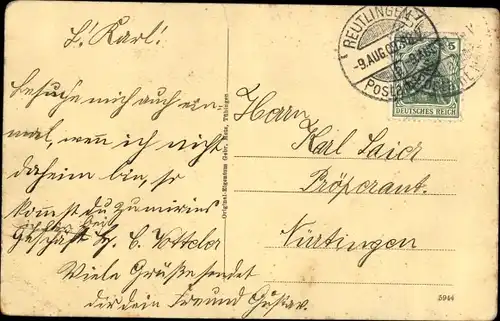 L. Karl!
Besuche mich auch ein-
mal, wenn ich nicht
daheim bin, so
kommst du zu mir ins
Geschäft bei
Viele Grüße sendet
dir dein Freund Gustav.
Original-Eigentum Gebr. Metz, Tübingen
REUTLINGEN
-9.AUG.09
DEUTSCHES REICH
5
Herrn
Karl
Nürtingen
5944